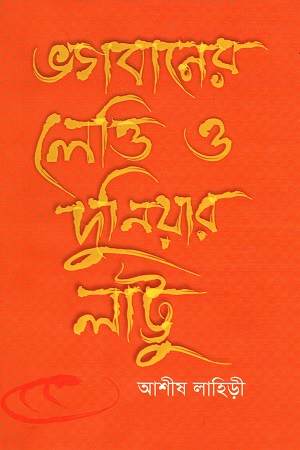 ভগবানের
লেত্তি ও
দুনিয়ার
লাট্টু
আশীষ লাহিড়ী